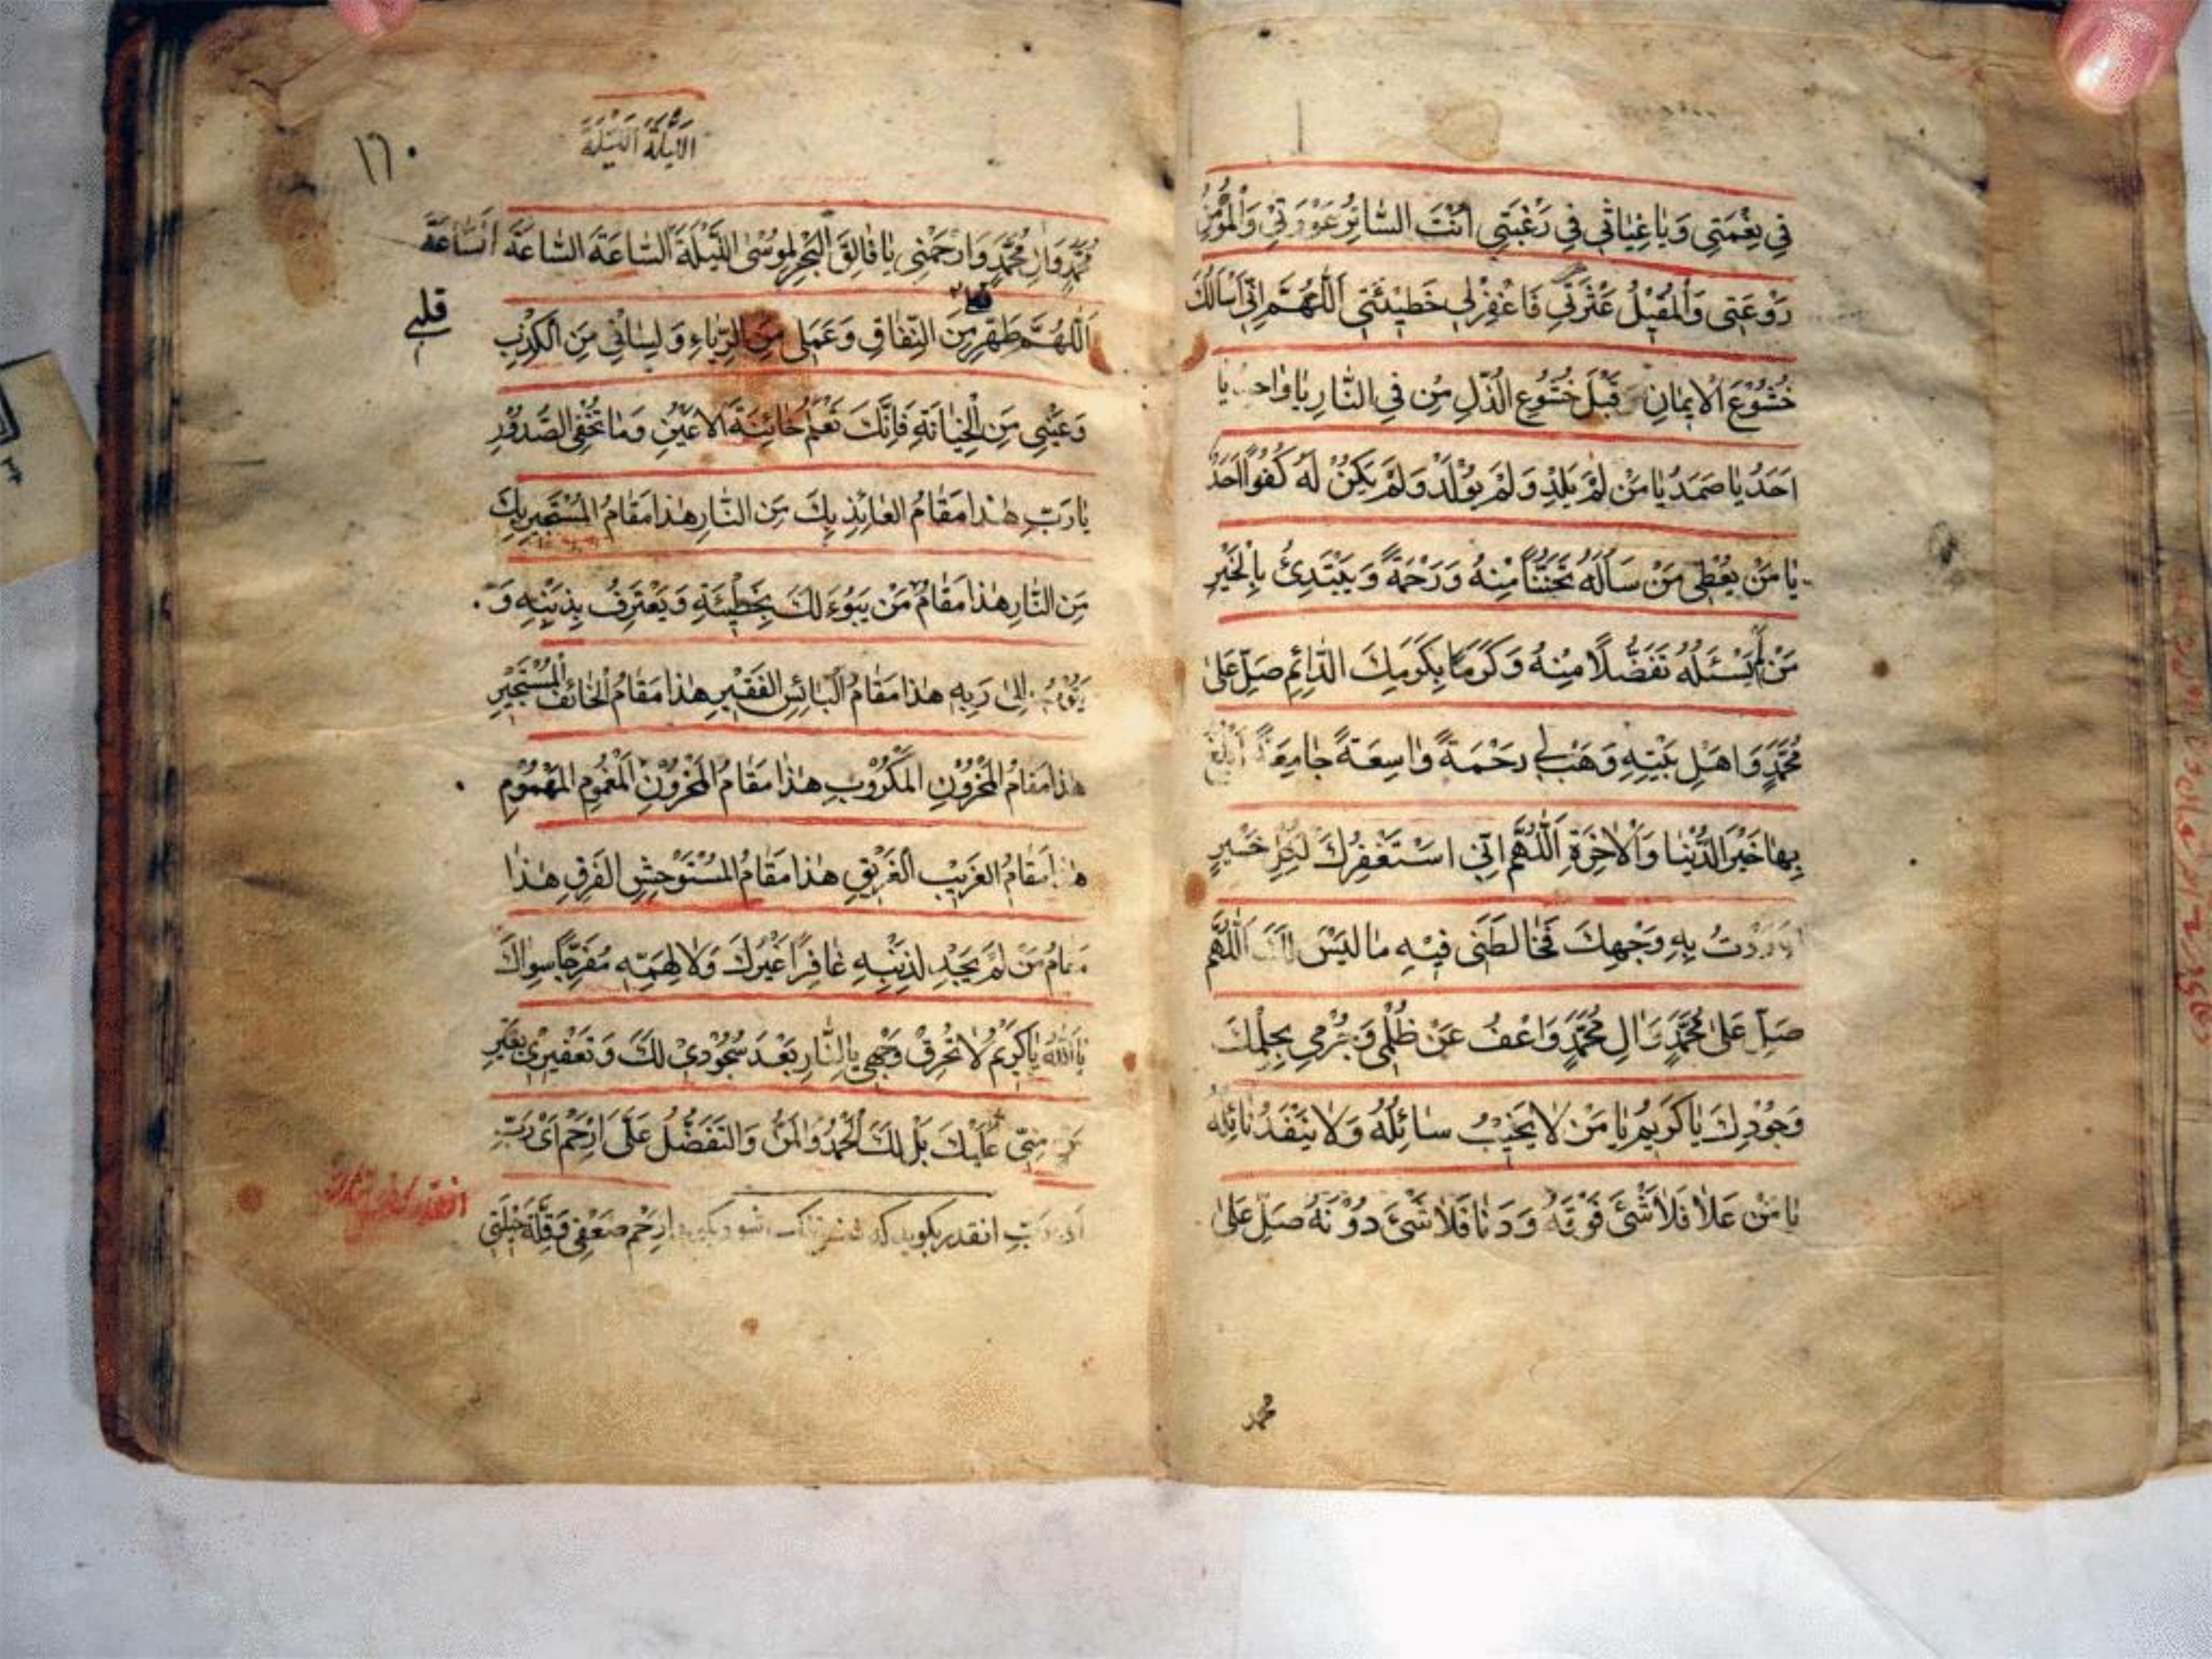 في نِعْمَتِي وَيَا غِيَاثِي فِي رَغْبَتِي أَنْتَ السَّاتِرُ عَوْرَتِي وَالْمُؤْمِنُ
رَوْعَتِي وَالْمُقِيلُ عَثْرَتِي فَاغْفِرْ لِي خَطِيئَتِي اَللّٰهُمَّ اِنِّي اَسْأَلُكَ
خُشُوْعَ الْاِيمَانِ قَبْلَ خُشُوعِ الذُّلِّ مِنْ فِي النَّارِ يَا وَاحِدُ يَا
اَحَدُ يَا صَمَدُ يَا مَنْ لَمْ يَلِدْ وَلَمْ يُوْلَدْ وَلَمْ يَكُنْ لَهُ كُفُوًا اَحَدٌ
يَا مَنْ يُعْطِي مَنْ سَأَلَهُ تَحَنُّنًا مِنْهُ وَرَحْمَةً وَيَبْتَدِئُ بِالْخَيْرِ
مَنْ لَمْ يَسْئَلْهُ تَفَضُّلًا مِنْهُ وَكَرَمًا بِكَرَمِكَ الدَّائِمِ صَلِّ عَلَى
مُحَمَّدٍ وَاَهْلِ بَيْتِهِ وَهَبْ لِي رَحْمَةً وَاسِعَةً جَامِعَةً اَبْلُغُ
بِهَا خَيْرَ الدُّنْيَا وَالْاٰخِرَةِ اَللّٰهُمَّ اِنِّي اسْتَغْفِرُكَ لِكُلِّ خَيْرٍ
اَرَدْتُ بِهِ وَجْهَكَ فَخَالَطَنِي فِيْهِ مَا لَيْسَ لَكَ اَللّٰهُمَّ
صَلِّ عَلَى مُحَمَّدٍ وَاٰلِ مُحَمَّدٍ وَاعْفُ عَنْ ظُلْمِي وَجُرْمِي بِحِلْمِكَ
وَجُوْدِكَ يَا كَرِيمُ يَا مَنْ لَا يَخِيْبُ سَائِلُهُ وَلَا يَنْفَدُ نَائِلُهُ
يَا مَنْ عَلَا فَلَا شَيْئَ فَوْقَهُ وَدَنَا فَلَا شَيْئَ دُوْنَهُ صَلِّ عَلَى
محمد
١٦٠
اللَّيْلَةَ اللَّيْلَةَ
مُحَمَّدٍ وَاٰلِ مُحَمَّدٍ وَارْحَمْنِي يَا فَالِقَ الْبَحْرِ لِمُوْسٰى اللَّيْلَةَ السَّاعَةَ السَّاعَةَ السَّاعَةَ
اَللّٰهُمَّ طَهِّرْ مِنَ النِّفَاقِ وَعَمَلِي مِنَ الرِّيَاءِ وَلِسَانِي مِنَ الْكَذِبِ
قلبي
وَعَيْنِي مِنَ الْخِيَانَةِ فَاِنَّكَ تَعْلَمُ خَائِنَةَ الْاَعْيُنِ وَمَا تُخْفِي الصُّدُوْرُ
يَا رَبِّ هٰذَا مَقَامُ الْعَائِذِ بِكَ مِنَ النَّارِ هٰذَا مَقَامُ الْمُسْتَجِيرِ بِكَ
مِنَ النَّارِ هٰذَا مَقَامُ مَنْ يَبُوْءُ لَكَ بِخَطِيئَتِهِ وَيَعْتَرِفُ بِذَنْبِهِ وَ
يَتُوْبُ اِلَى رَبِّهِ هٰذَا مَقَامُ الْبَائِسِ الْفَقِيْرِ هٰذَا مَقَامُ الْخَائِفِ الْمُسْتَجِيْرِ
هٰذَا مَقَامُ الْمَحْزُوْنِ الْمَكْرُوْبِ هٰذَا مَقَامُ الْمَحْزُوْنِ الْمَغْمُوْمِ الْمَهْمُوْمِ
هٰذَا مَقَامُ الْغَرِيْبِ الْغَرِيْقِ هٰذَا مَقَامُ الْمُسْتَوْحِشِ الْفَرِقِ هٰذَا
مَقَامُ مَنْ لَمْ يَجِدْ لِذَنْبِهِ غَافِرًا غَيْرَكَ وَلَا لِهَمِّهِ مُفَرِّجًا سِوَاكَ
يَا اَللّٰهُ يَا كَرِيْمُ لَا تُحْرِقْ وَجْهِي بِالنَّارِ بَعْدَ سُجُوْدِي لَكَ وَتَعْفِيْرِيْ بِغَيْرِ
مَنٍّ مِنِّي عَلَيْكَ بَلْ لَكَ الْحَمْدُ وَالْمَنُّ وَالتَّفَضُّلُ عَلَيَّ اِرْحَمْ اَيْ رَبِّ
اَيْ رَبِّ انقدر بكويد كه نفس شود و بكويد اِرْحَمْ ضَعْفِي وَقِلَّةَ حِيْلَتِي